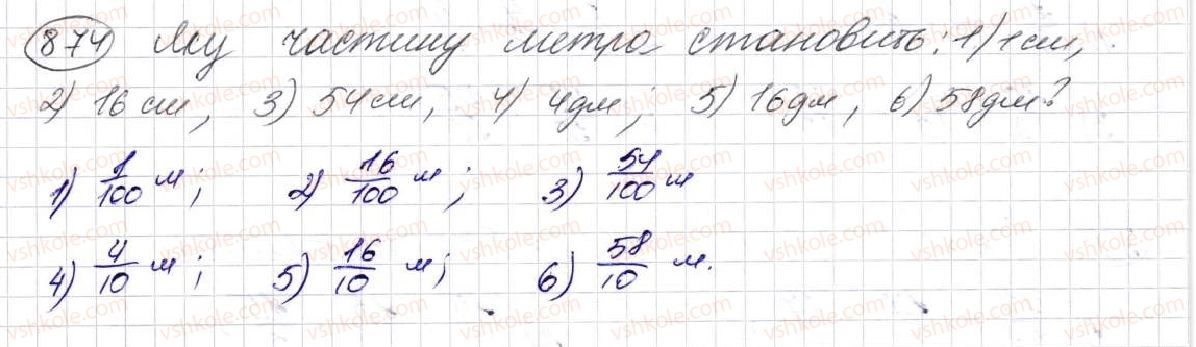 874 Яку частину метра становить: 1) 1 см,
2) 16 см, 3) 54 см, 4) 4 дм; 5) 16 дм, 6) 58 дм?
1) 1/100 м; 2) 16/100 м; 3) 54/100 м
4) 4/10 м; 5) 16/10 м; 6) 58/10 м.
vshkole.com